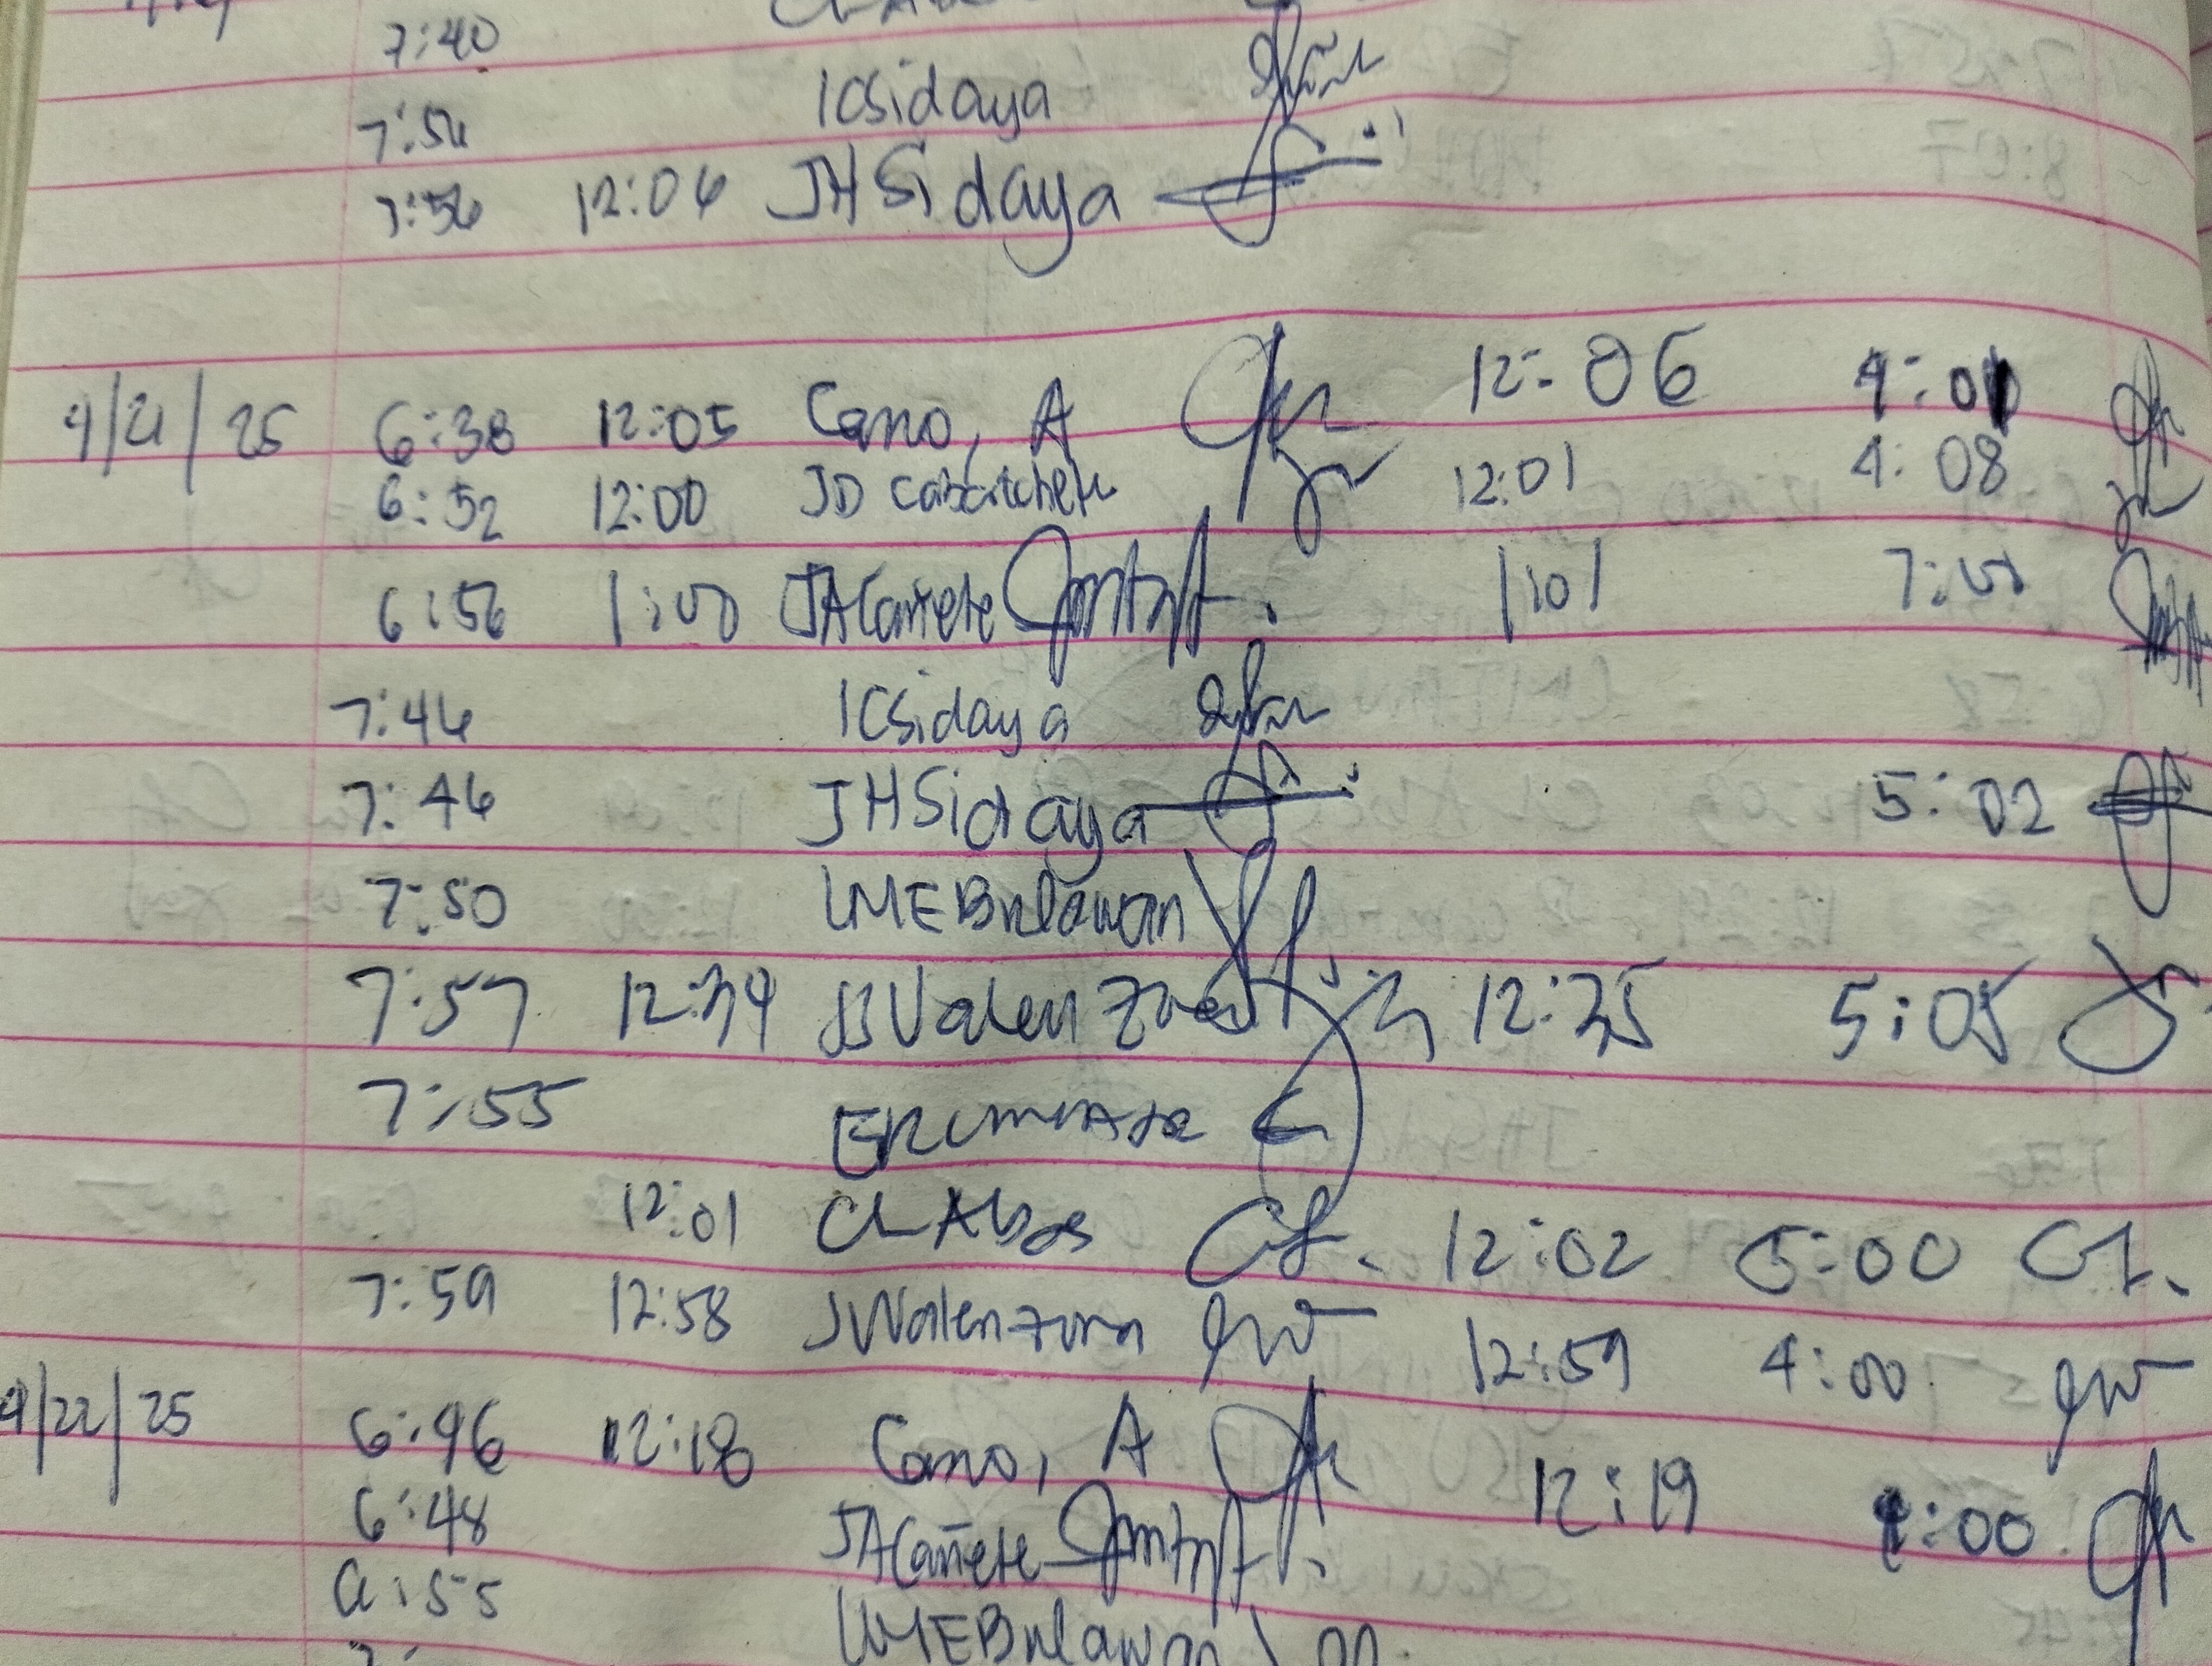 7:40
7:54 ICSidaya
7:56 12:04 JHSidaya
4/21/25 6:38 12:05 Cano, A 12:06 4:01
6:52 12:00 JD Cabatchete 12:01 4:08
6:56 1:00 JACañete 1:01 7:00
7:44 ICSidaya
7:46 JHSidaya 5:02
7:50 LMEBulawan
7:57 12:34 JJValenzuela 12:35 5:05
7:55
12:01 CLAbos 12:02 5:00
7:59 12:58 JValenzona 12:59 4:00
4/22/25 6:46 12:18 Cano, A 12:19 4:00
6:48 JACañete
6:55 LMEBulawan